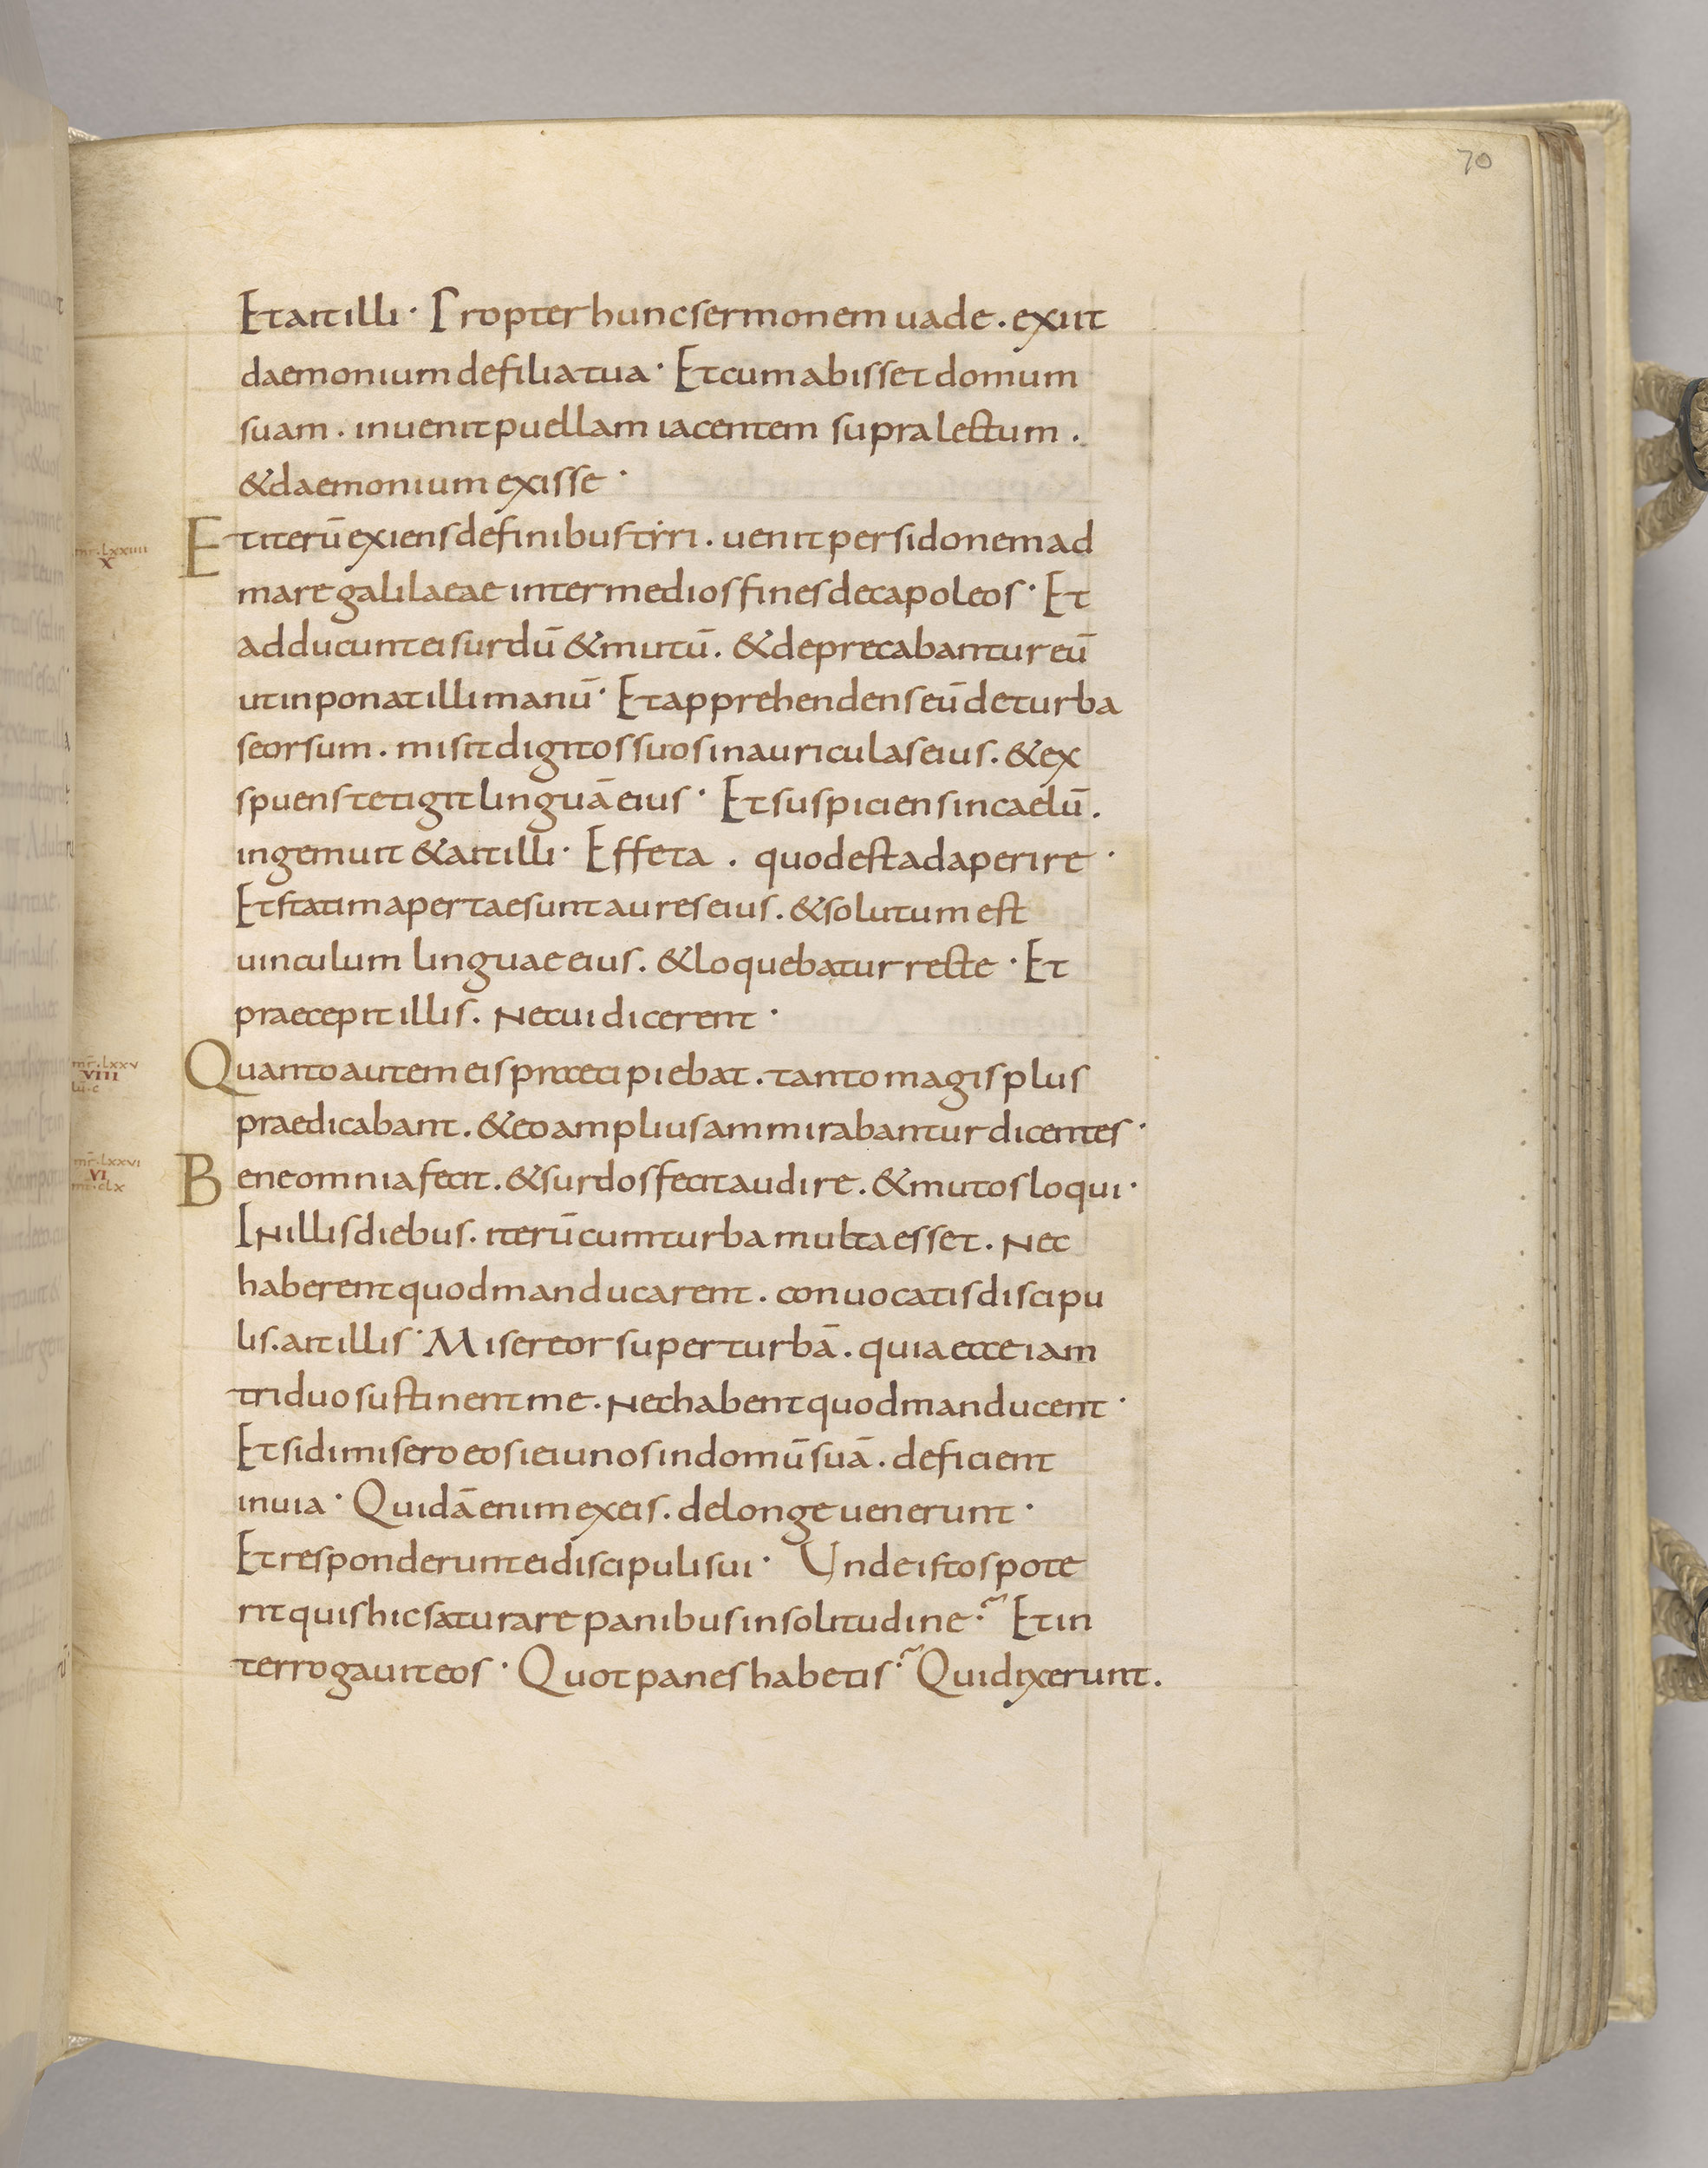 70
Et ait illi · Propter hunc sermonem uade . exiit
daemonium de filia tua · Et cum abisset domum
suam . inuenit puellam iacentem supra lectum .
& daemonium exisse ·
mr̄ . lxxiiii
x
Et iterū exiens de finibus tyri . uenit per sidonem ad
mare galilaeae inter medios fines decapoleos · Et
adducunt ei surdū & mutū . & deprecabantur eū
ut inponat illi manū · Et apprehendens eū de turba
seorsum . misit digitos suos in auriculas eius . & ex
spuens tetigit linguā eius · Et suspiciens in caelū .
ingemuit & ait illi · Effeta . quod est adaperire ·
Et statim apertae sunt aures eius . & solutum est
uinculum linguae eius . & loquebatur recte · Et
praecepit illis . Ne cui dicerent ·
mr̄ . lxxv
viii
lu . c
Quanto autem eis praecipiebat . tanto magis plus
praedicabant . & eo amplius ammirabantur dicentes ·
mr̄ . lxxvi
vi
mt . clx
Bene omnia fecit . & surdos fecit audire . & mutos loqui ·
IN illis diebus . iterū cum turba multa esset . Nec
haberent quod manducarent . conuocatis discipu
lis . ait illis · Misereor super turbā . quia ecce iam
triduo sustinent me . Nec habent quod manducent ·
Et si dimisero eos ieiunos in domū suā . deficient
in uia · Quidā enim ex eis . de longe uenerunt ·
Et responderunt ei discipuli sui · Unde istos pote
rit quis hic saturare panibus in solitudine ? Et in
terrogauit eos · Quot panes habetis ? Qui dixerunt .